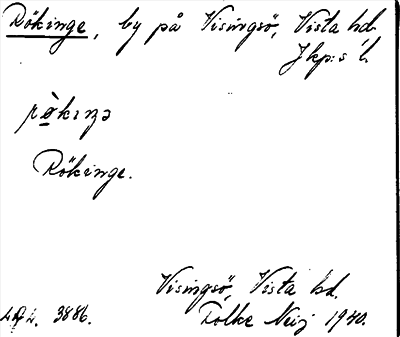 Rökinge, by på Visingsö, Vista hd.
Jkp:s l.
rö̀kıŋə
Rökinge.
Visingsö, Vista hd.
3886. Folke Neij 1940.